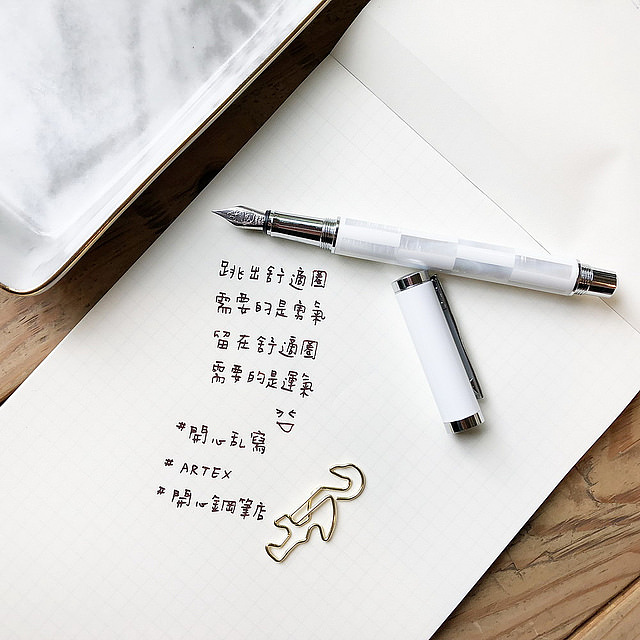 跳出舒適圈
需要的是勇氣
留在舒適圈
需要的是運氣
#開心乱寫
# ARTEX
#開心鋼筆店